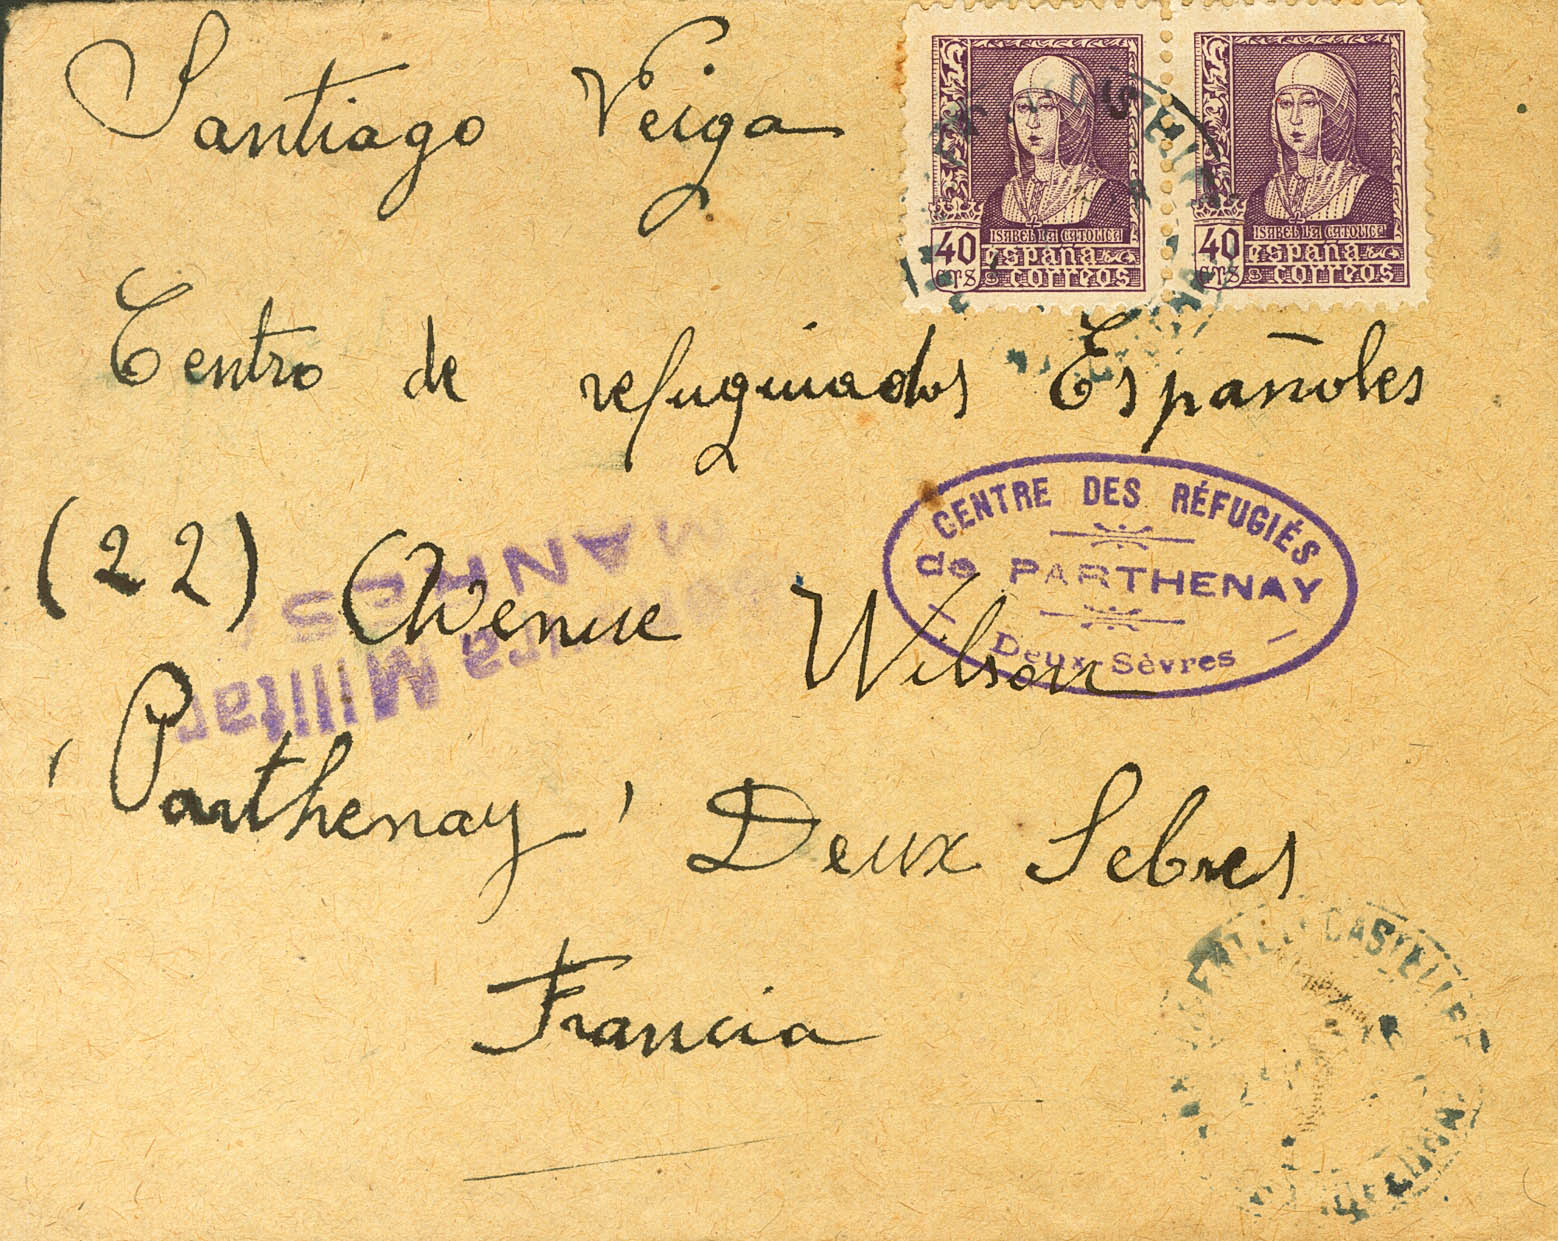 Santiago Veiga
40 CTS ISABEL LA CATOLICA españa correos
40 CTS ISABEL LA CATOLICA españa correos
Centro de refuguiados Españoles
CENTRE DES RÉFUGIÉS
de PARTHENAY
Deux-Sèvres
(22) Avenue Wilson
Militar
MANRES
'Parthenay' Deux Sebres
Francia
CASTELL